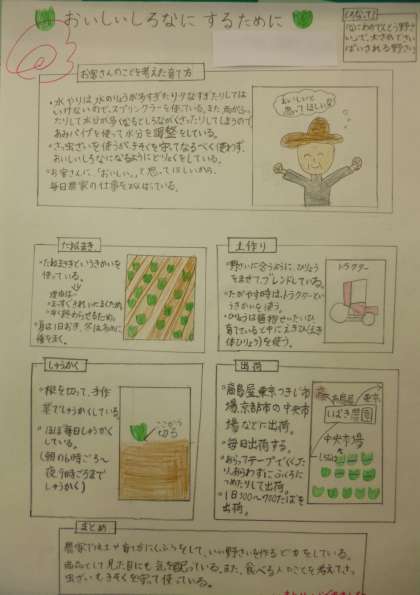 おいしいしろなに するために
しろなって?
なにわのでんとう野さ
いで、大さかでさい
ばいされる野さい
お客さんのことを考えた育て方
・水やりは、水のりょうが多すぎたり少なすぎたりしては
いけないので、スプリンクラーを使っている。また、雨がふっ
たりして水分が多くなるとしろながくさったりしてしまうので
あみパイプを使って水分を調整をしている。
・さっ虫ざいを使うが、きそくを守ってなるべく使わず、
おいしいしろなになるようにどりょくをしている。
・お客さんに、「おいしい。」と思ってほしいから、
毎日農家の仕事をがんばっている。
おいしいと
思ってほしいな!
たねまき
・たねまきというきかいを
使っている。
理由は…
・まっすぐきれいにまくため。
・早く終わらせるため。
・夏は1日おき、冬は
種をまく。
土作り
・野さいに合うように、ひりょう
をまぜて、ブレンドしている。
・たがやす時は、トラクターとい
うきかいを使う。
・ひりょうは
育てている と中にえきひ(えき
体ひりょう)を使う。
トラクター
しゅうかく
・根を切って、手作
業でしゅうかくしている。
・ほぼ毎日しゅうかく
している。
(朝の6時ごろ〜
夜 時ごろまで
しゅうかく)
ここから
切る
出荷
・高島屋、東京つきじ市
場、京都市の中央市
場などに出荷。
・毎日出荷する。
・あらってテープでくくった
り、切らずにふくろに
つめたりして出荷。
・1日500〜700たばを
出荷。
高島屋
東京
いばき農園
中央市場
しろな
まとめ
農家で
商品として見た目にも気を配っている。また、食べる人のことを考えてさっ
虫ざいもきそくを守って使っている。